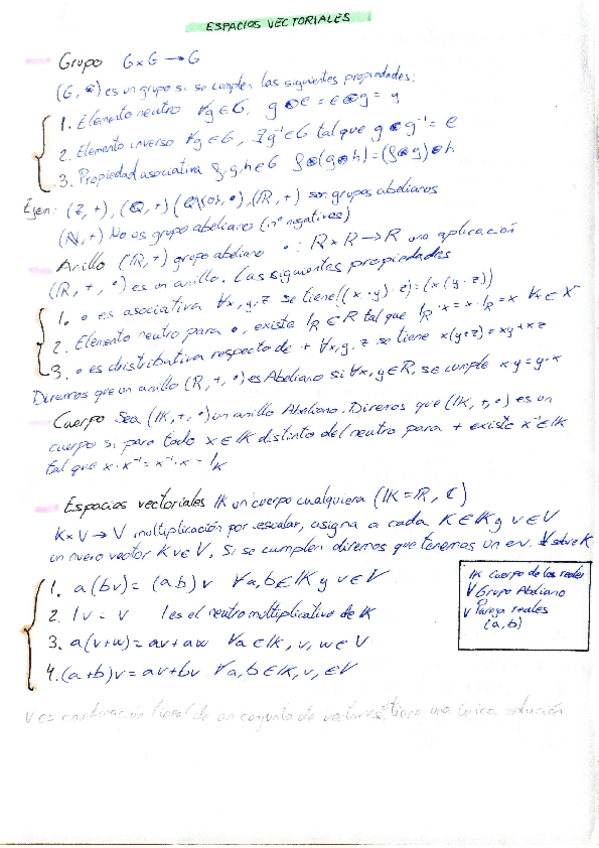 ESPACIOS VECTORIALES
Grupo G×G→G
(G, •) es un grupo si se cumplen las siguientes propiedades:
1. Elemento neutro ∀g∈G, g•e = e•g = g
2. Elemento inverso ∀g∈G, ∃g⁻¹∈G tal que g•g⁻¹ = e
3. Propiedad asociativa f,g,h∈G f•(g•h) = (f•g)•h
Ejem: (Z, +), (Q, +) (Q\{0}, •), (R, +) son grupos abelianos
(N, +) No es grupo abeliano (nº negativos)
Anillo (R, +) grupo abeliano • : R×R→R una aplicación
(R, +, •) es un anillo. Las siguientes propiedades
1. • es asociativa ∀x,y,z se tiene ((x·y)·z) = (x(y·z))
2. Elemento neutro para •, existe 1_R ∈ R tal que 1_R·x = x·1_R = x ∀x∈X
3. • es distributiva respecto de + ∀x,y,z se tiene x(y+z) = xy+xz
Diremos que un anillo (R, +, •) es Abeliano si ∀x,y∈R, se cumple x·y = y·x
Cuerpo Sea (K, +, •) un anillo Abeliano. Diremos que (K, +, •) es un
cuerpo si para todo x∈K distinto del neutro para + existe x⁻¹∈K
tal que x·x⁻¹ = x⁻¹·x = 1_K
Espacios vectoriales K un cuerpo cualquiera (K = R, C)
K×V→V multiplicación por escalar, asigna a cada K∈K y v∈V
un nuevo vector Kv∈V, Si se cumplen diremos que tenemos un e.v. V sobre K
1. a(bv) = (ab)v ∀a,b∈K y v∈V
2. 1v = v 1 es el neutro multiplicativo de K
3. a(v+w) = av+aw ∀a∈K, v, w∈V
4. (a+b)v = av+bv ∀a,b∈K, v, ∈V
K Cuerpo de los reales
V Grupo Abeliano
v Pareja reales
(a, b)
V es combinación lineal de un conjunto de vectores, tiene una única solución